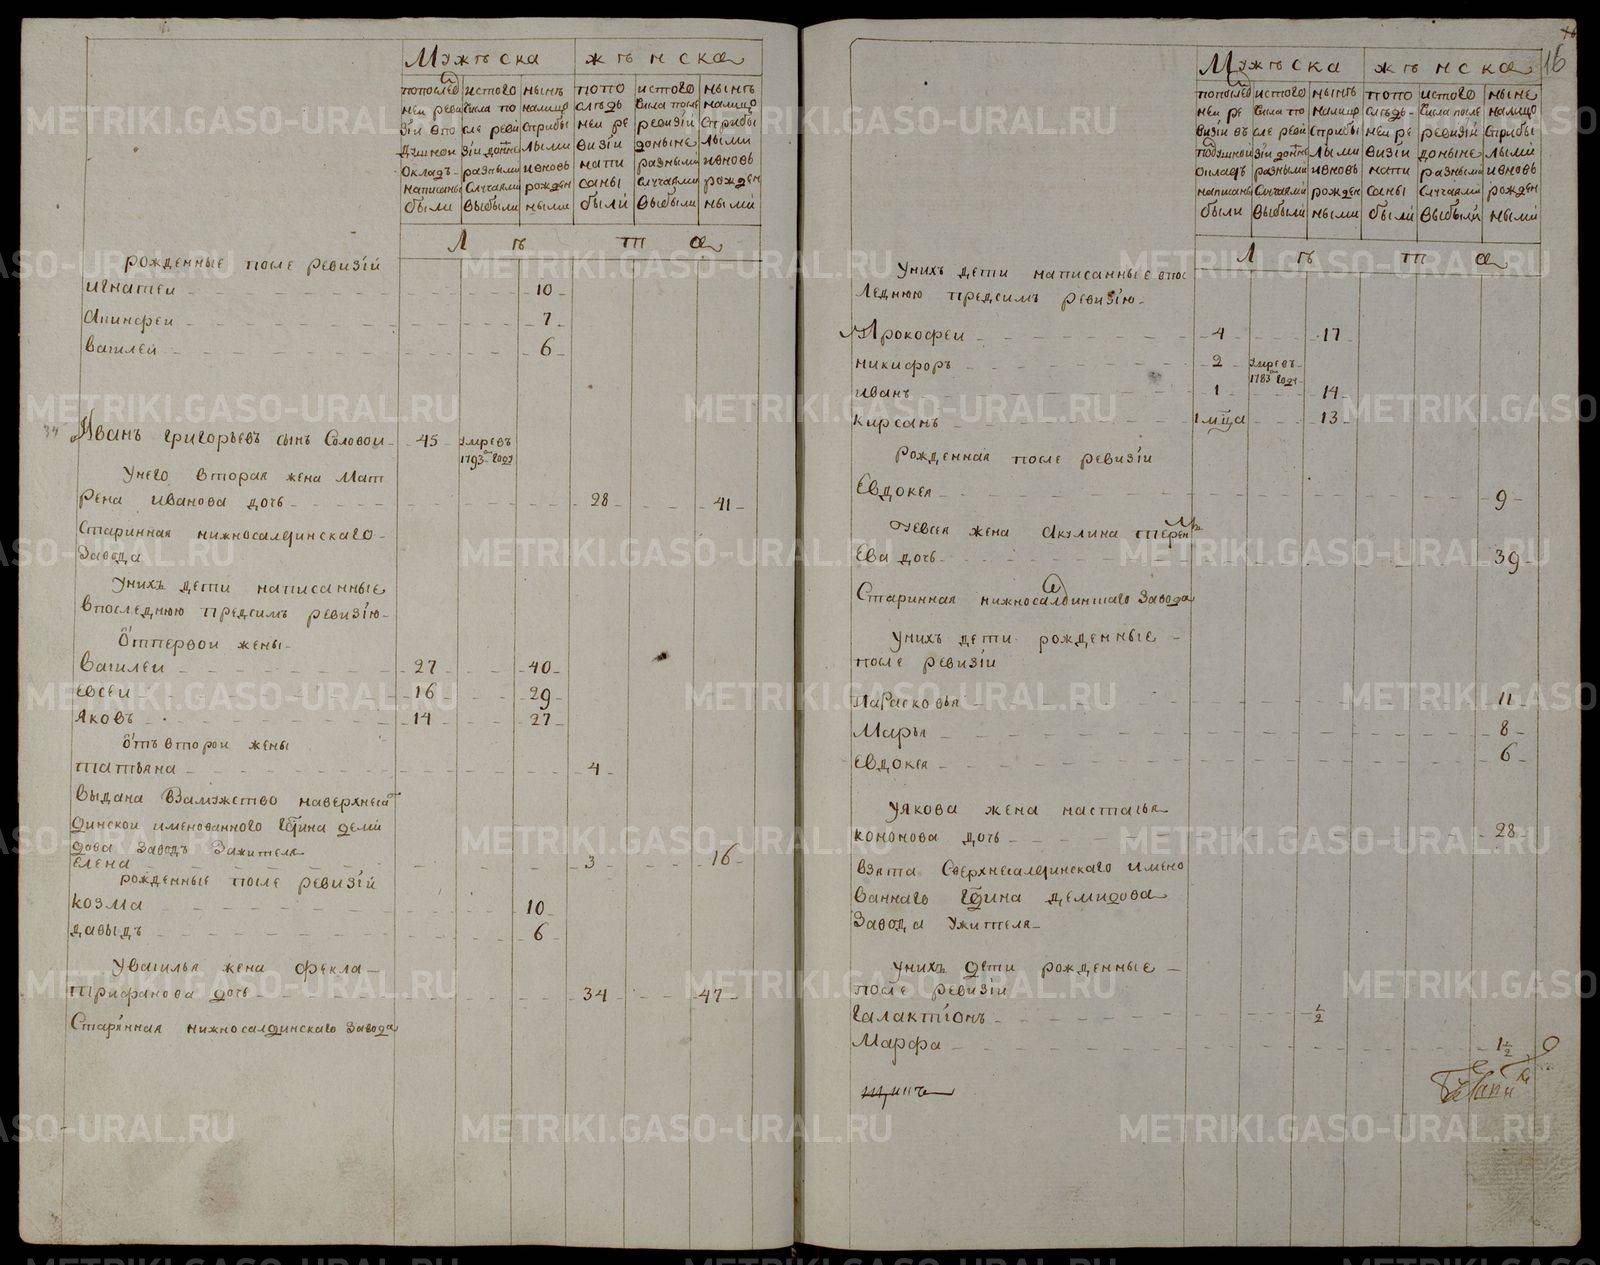 Мужеска женска
попослед
ней реви
зiи впо
душнои
окладъ
написаны
были
истого
числа по
сле реви
зiи донне
разными
случаями
выбыли
ныне
налицо
сприбы
лыми
ивновь
рожден
ными
попо
следь
ней ре
визiи
напи
саны
были
истого
числа после
ревизiи
доныне
разными
случаями
выбыли
ныне
налицо
сприбы
лыми
ивновь
рожден
ными
Лета
рожденные после ревизiи
игнатеи 10
Акинфеи 7
василеи 6
34
Иванъ григорьевъ сынъ Соловои 45 умревъ
1793 году
Унего вторая жена Мат
рена иванова дочь 28 41
Старинная нижносалдинскаго
завода
Унихъ дети написанные
впоследнюю предсимъ ревизiю
отпервои жены
василеи 27 40
евсеи 16 29
яковъ 14 27
отъ второи жены
татьяна 4
выдана взамужство наверхнесал
динскои именованного Гдина деми
дова заводъ зажителя
елена 3 16
рожденные после ревизiи
козма 10
давыдъ 6
Увасилья жена фекла
трифанова дочь 34 47
Старинная нижносалдинскаго завода
16
Мужеска женска
попослед
ней ре
визiи въ
подушной
окладъ
написаны
были
истого
числа по
сле реви
зiи донне
разными
случаями
выбыли
ныне
налицо
сприбы
лыми
ивновь
рожден
ными
попо
следь
ней ре
визiи
напи
саны
были
истого
числа после
ревизiи
доныне
разными
случаями
выбыли
ныне
налицо
сприбы
лыми
ивновь
рожден
ными
Лета
Унихъ дети написанные впос
леднюю предсимъ ревизiю
Прокофеи 4 17
никифоръ 2 умревъ
1783 году
иванъ 1 14
кирсанъ 1 мца 13
Рожденная после ревизiи
Евдокея 9
Уевсея жена Акулина терент
ева дочь 39
Старинная нижносалдинскаго завода
Унихъ дети рожденные
после ревизiи
парасковья 11
Марья 8
евдокея 6
Уякова жена настасья
кононова дочь 28
взята Сверхнесалдинскаго имено
ваннаго Гдина демидова
завода ужителя
унихъ дети рожденные
после ревизiи
галактiонъ 1/2
Марфа 1 1/2
METRIKI.GASO-URAL.RU